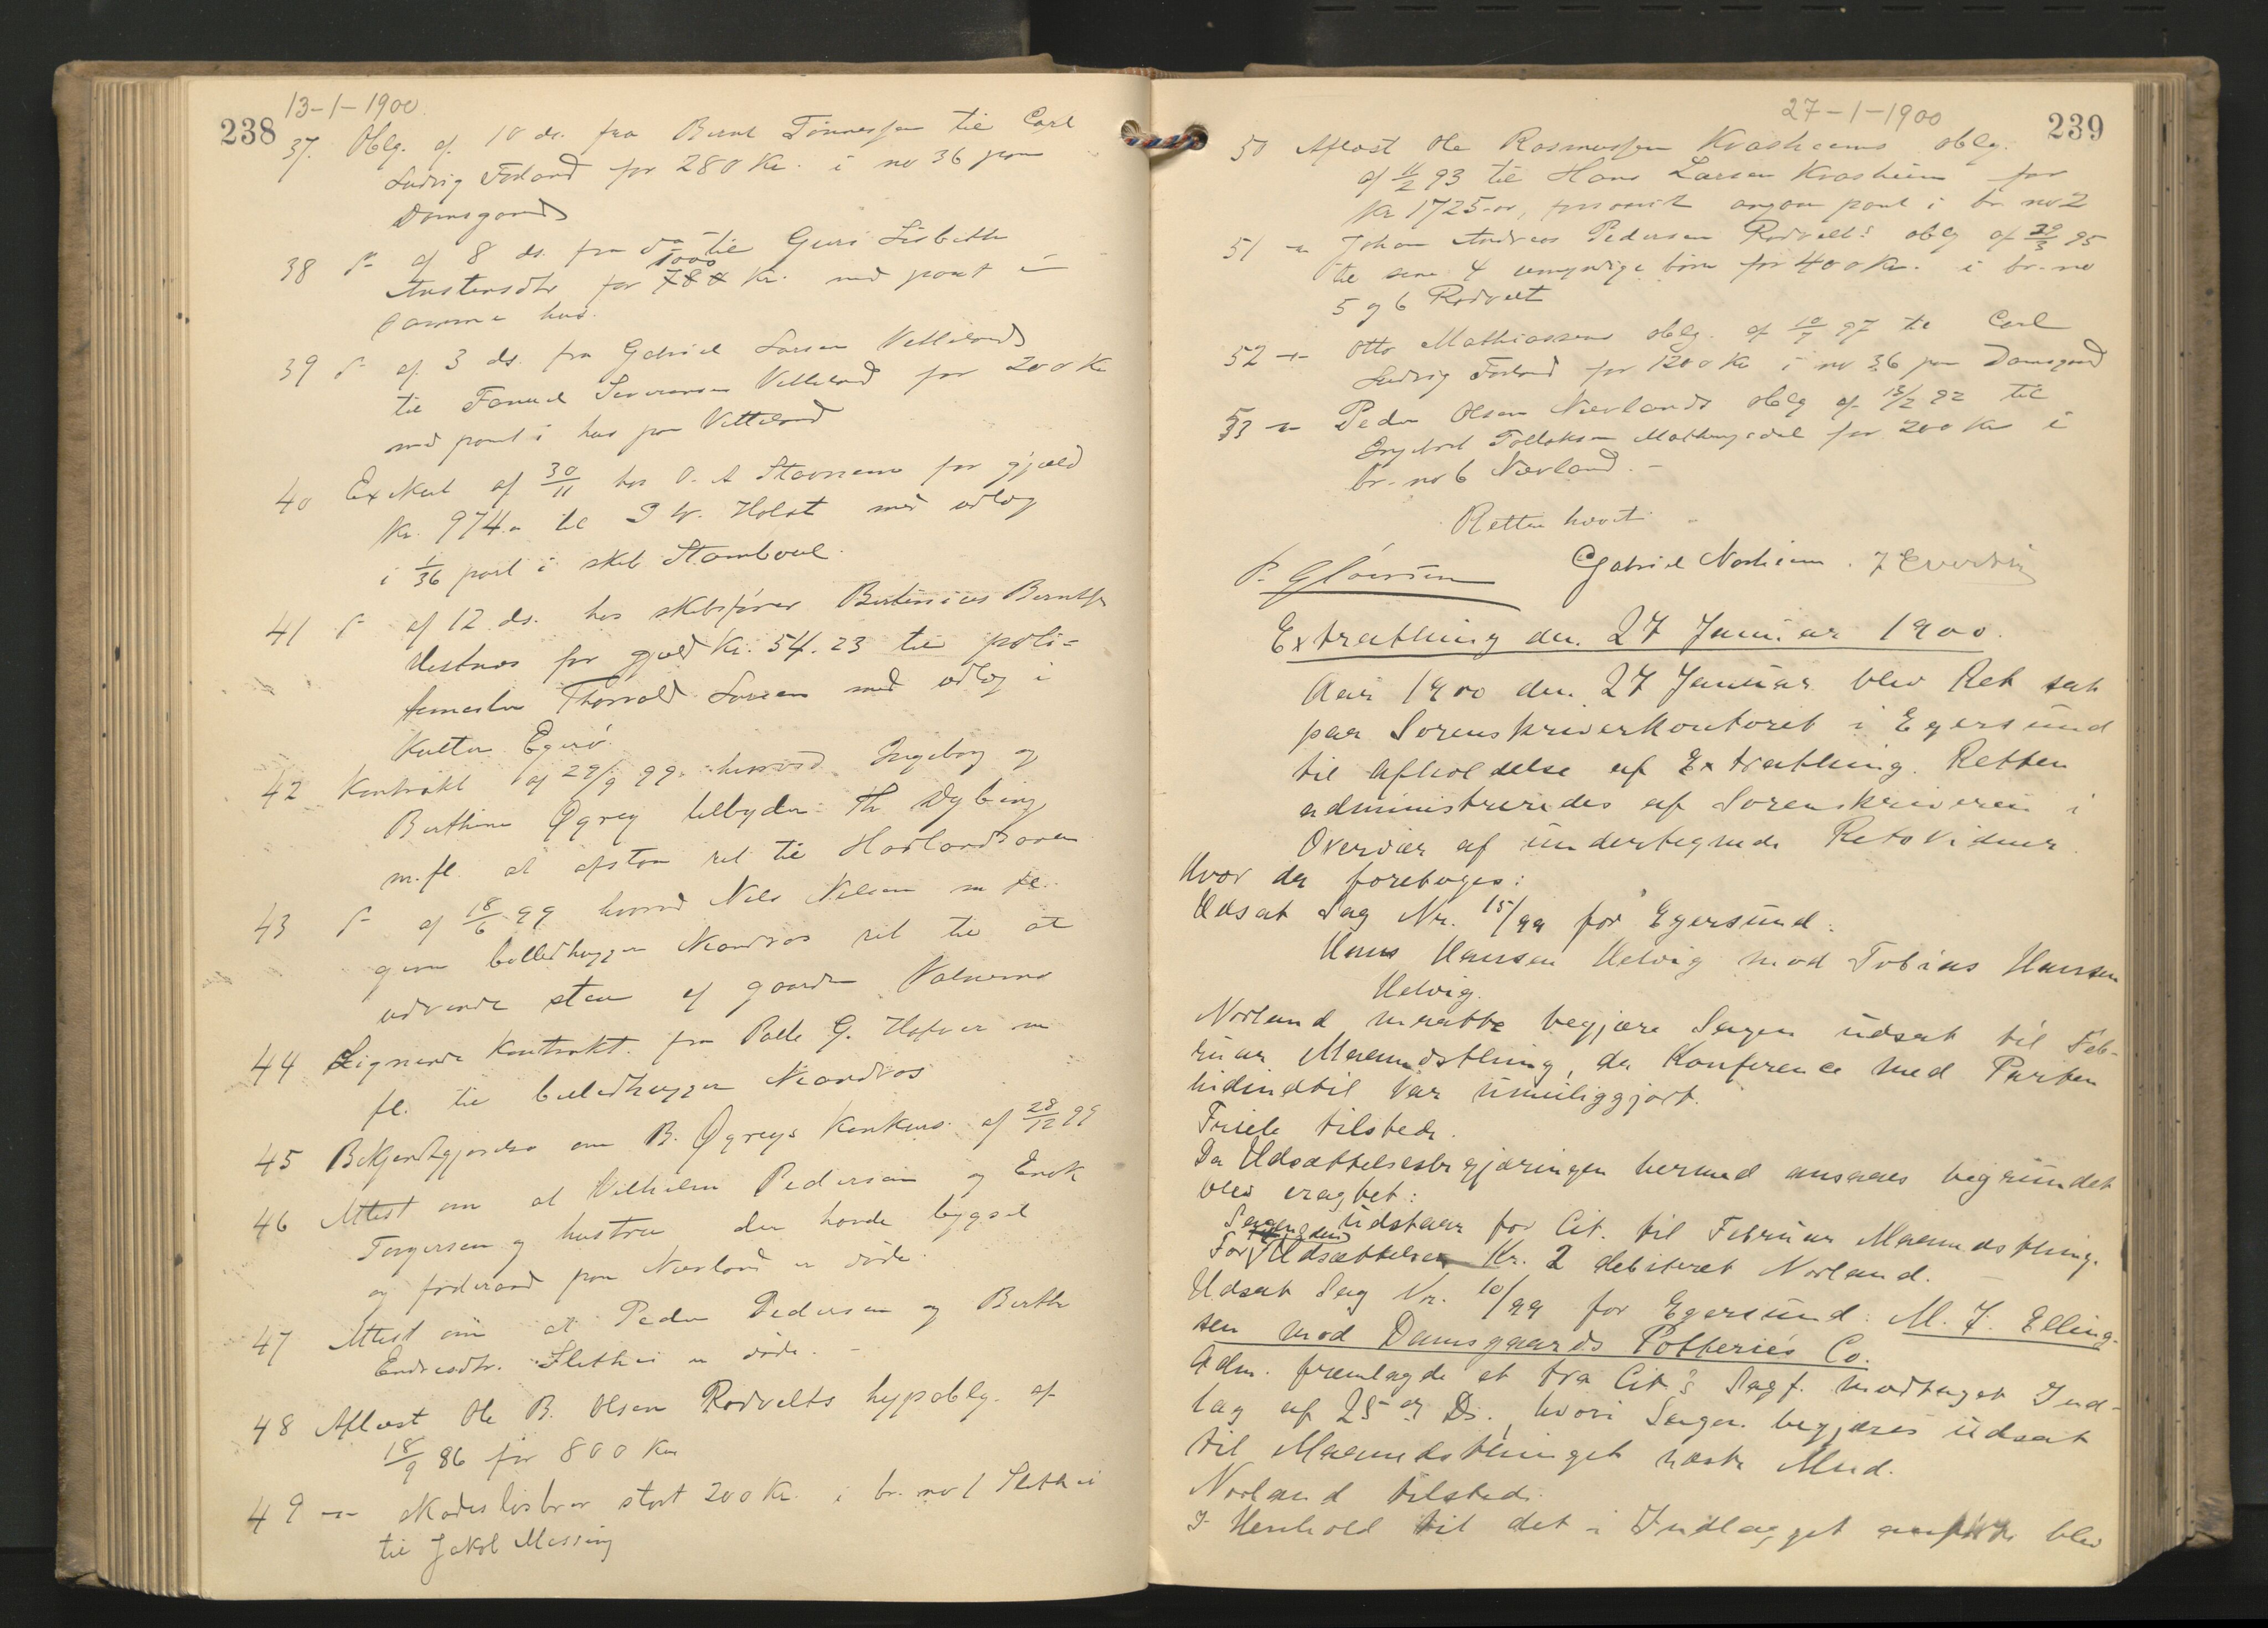 238
13-1-1900
37. Oblg. af 10 ds. fra Bernt Tönnessen til Carl
Ludvig Forland for 280 Kr. i no 36 paa
Damsgaard
38 af 8 ds. fra til Guri Lisbeth
Austensdtr for 1000 Kr. med pant i
samme hus.
39 af 3 ds. fra Gabriel Larsen Vetteland
til Samuel Severinsen Vetteland for 200 Kr
med pant i hus paa Vetteland
40 Exekut af 30/11 hos O. A. Stavnem for gjæld
Kr. 974.- til P W. Holst med udlæg
i 1/36 part i skib Stamboul.
41 af 12 ds. hos skibsfører Bertinius Berntsen
for gjæld Kr. 54.23 til politi-
Thorvald Larsen med udlæg i
Kutter Egerö.
42 Kontrakt af 29/9 99. hvorved Ingeborg og
Berthine Øgrey tilbyder Th. Dybing
m.fl. at afstaa ret til
43 af 18/6 99 hvorved Nils Nilsen m.fl.
giver billedhugger ret til at
udvinde sten af gaarden
44 Lignende Kontrakt fra G. m
fl. til billedhugger
45 Bekjendtgjørelse om B. Øgreys Konkurs af 28/12 99
46 Attest om at Vilhelm Pedersen og Enok
Torgersen og hustru der havde bygsel
og föderaad paa Nævland er döde.
47 Attest om at Peder Pedersen og Berthe
Endresdtr. Slethei er döde. -
48 Aflæst Ole B. Olsen Rodvelts hypoblg. af
18/9 86 for 800 Kr
49 -"- skadeslösbrev stort 200 Kr. i br. no 1 Slethei
til Jakob Messing
27-1-1900
239
50 Aflæst Ole Rasmussen Kvasheims oblg.
af 11/2 93 til Hans Larsen Kvasheim for
Kr 1725.00, forsaavidt angaar pant i br no 2
51 -"- Johan Andreas Pedersen Rodvelts oblg af 29/3 95
til sine 4 umyndige børn for 400 Kr. i br. no
5 og 6 Rodvelt
52 -"- Otto Mathiassens oblg. af 10/7 97 til Carl
Ludvig Forland for 1200 Kr i no 36 paa Damsgaard
53 -"- Peder Olsen Nævlands oblg af 13/2 92 til
Tollaksen for 200 Kr i
br. no 6 Nævland. -
Retten hævet
Gabriel
Extrathing den 27 Januar 1900.
Aar 1900 den 27 Januar blev Ret sat
paa Sorenskriverkontoret i Egersund
til Afholdelse af Extrathing. Retten
administreredes af Sorenskriveren i
Overvær af undertegnede Retsvidner.
Hvor da foretoges:
Udsat Sag Nr. 15/99 for Egersund:
Hans Hansen Helvig mod Tobias Hansen
Helvig.
Norland maatte begjære Sagen udsat til Feb-
ruar Maanedsthing, da Konference med Parten
hidindtil var umuliggjort.
Friele tilstede.
Da Udsættelsesbegjæringen hermed ansaaes begrundet
blev eragtet:
Sagen udstaar for Cit. til Februar Maanedsthing.
For Udsættelsen Kr. 2 debiteret Norland. -
Udsat Sag Nr. 10/99 for Egersund: M. J. Elling-
sen mod Damsgaards Potteries Co.
Adm. fremlagde et fra Cit's Sagf. modtaget Ind-
læg af 25de Ds., hvori Sagen begjæres udsat
til Maanedsthinget næste Mnd.
Norland tilstede.
I Henhold til det i Indlægget anførte blev